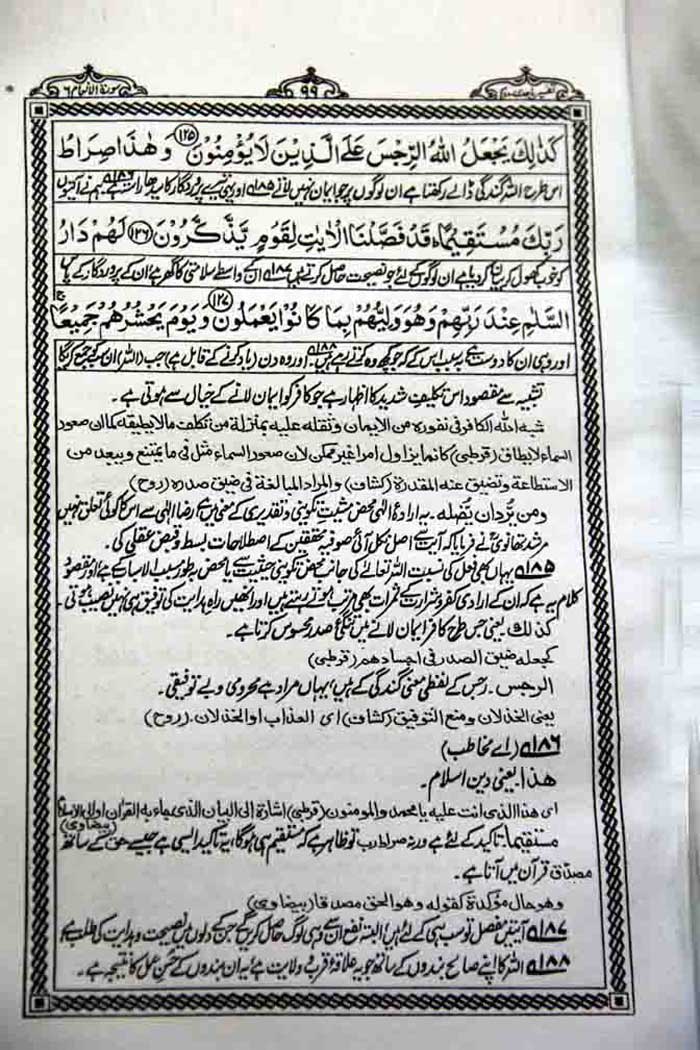 سورۃ الانعام ۶
۹۹
تفسیر ماجدی
كَذٰلِكَ يَجْعَلُ اللّٰهُ الرِّجْسَ عَلَى الَّذِيْنَ لَا يُؤْمِنُوْنَ ﴿۱۲۵﴾ وَهٰذَا صِرَاطُ
اس طرح اللہ گندگی ڈالے رکھتا ہے ان لوگوں پر جو ایمان نہیں لاتے ۱۸۵ اور یہی تیرے پروردگار کا سیدھا راستہ ہے ۱۸۶ ہم نے آیتوں
رَبِّكَ مُسْتَقِيْمًا ؕ قَدْ فَصَّلْنَا الْاٰيٰتِ لِقَوْمٍ يَّذَّكَّرُوْنَ ﴿۱۲۶﴾ لَهُمْ دَارُ
کو خوب کھول کر بیان کر دیا ہے ان لوگوں کے لئے جو نصیحت حاصل کرتے ہیں ۱۸۷ ان کے واسطے سلامتی کا گھر ہے ان کے پروردگار کے پاس
السَّلٰمِ عِنْدَ رَبِّهِمْ وَهُوَ وَلِيُّهُمْ بِمَا كَانُوْا يَعْمَلُوْنَ ﴿۱۲۷﴾ وَيَوْمَ يَحْشُرُهُمْ جَمِيْعًا ۚ
اور وہی ان کا دوست ہے بہ سبب اس کے کہ جو کچھ وہ کرتے رہے ہیں ۱۸۸ اور وہ دن (یاد کرنے کے قابل ہے) جب (اللہ) ان سب کو جمع کرے گا
تشبیہ سے مقصود اس تکلیف شدید کا اظہار ہے جو کافر کو ایمان لانے کے خیال سے ہوتی ہے۔
شبه الله الكافر فى نفوره من الايمان وثقله عليه بمنزلة من تكلف مالا يطيقه كما ان صعود
السماء لا يطاق (قرطبی) كانما يزاول امرا غير ممكن لان صعود السماء مثل فى ما يمتنع ويبعد من
الاستطاعة وتضيق عنه المقدرة (کشاف) والمراد المبالغة فى ضيق صدره (روح)
ومن يُّردان يُضله۔ یہ ارادۂ الٰہی محض مشیت تکوینی و تقدیری کے معنی میں ہے، رضا الٰہی سے اس کا کوئی تعلق نہیں
مرشد تھانویؒ نے فرمایا کہ آیت سے اصل نکل آئی صوفیہ محققین کے اصطلاحات بسط و قبض عقلی کی۔
۱۸۵ یہاں بھی فعل کی نسبت اللہ تعالےٰ کی جانب محض تکوینی حیثیت سے یا محض بہ طور مسبب الاسباب کے ہے، اور مقصود
کلام یہ ہے کہ ان کے ارادی کفر و شرارت کے ثمرات بھی مرتب ہوتے رہتے ہیں اور انھیں راہ ہدایت کی توفیق ہی نہیں نصیب ہوتی۔
کذلك یعنی جس طرح کافر ایمان لانے میں تنگیٔ صدر محسوس کرتا ہے۔
كجعله ضيق الصدر فى اجسادهم (قرطبی)
الرجس۔ رجس کے لفظی معنی گندگی کے ہیں، یہاں مراد ہے محرومی و بے توفیقی۔
يعنى الخذلان ومنع التوفيق (کشاف) اى العذاب او الخذلان۔ (روح)
۱۸۶ (اے مخاطب)
هذا یعنی دین اسلام۔
اى هذا الذى انت عليه يا محمد والمومنون (قرطبی) اشارة الى البيان الذى جاء به القران او الى الاسلام (بیضاوی)
مستقيما۔ تاکید کے لئے ہے ورنہ صراط رب تو ظاہر ہے کہ مستقیم ہی ہوگا، یہ تاکید ایسی ہے جیسے حق کے ساتھ
مصدّق قرآن میں آتا ہے۔
وهو حال مؤكدة كقوله وهو الحق مصدقا (بیضاوی)
۱۸۷ آیتیں مفصل تو سب ہی کے لئے ہیں، البتہ نفع ان سے وہی لوگ حاصل کریں گے جن کے دلوں میں نصیحت و ہدایت کی طلب ہے
۱۸۸ اللہ کا اپنے صالح بندوں کے ساتھ جو یہ علاقۂ قرب و ولایت ہے، یہ ان بندوں کے حسن عمل کا نتیجہ ہے۔